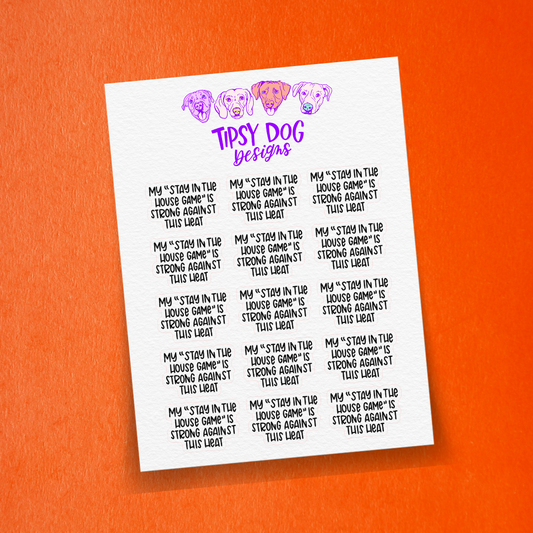 TIPSY DOG
Designs
MY "STAY IN THE
HOUSE GAME" IS
STRONG AGAINST
THIS HEAT
MY "STAY IN THE
HOUSE GAME" IS
STRONG AGAINST
THIS HEAT
MY "STAY IN THE
HOUSE GAME" IS
STRONG AGAINST
THIS HEAT
MY "STAY IN THE
HOUSE GAME" IS
STRONG AGAINST
THIS HEAT
MY "STAY IN THE
HOUSE GAME" IS
STRONG AGAINST
THIS HEAT
MY "STAY IN THE
HOUSE GAME" IS
STRONG AGAINST
THIS HEAT
MY "STAY IN THE
HOUSE GAME" IS
STRONG AGAINST
THIS HEAT
MY "STAY IN THE
HOUSE GAME" IS
STRONG AGAINST
THIS HEAT
MY "STAY IN THE
HOUSE GAME" IS
STRONG AGAINST
THIS HEAT
MY "STAY IN THE
HOUSE GAME" IS
STRONG AGAINST
THIS HEAT
MY "STAY IN THE
HOUSE GAME" IS
STRONG AGAINST
THIS HEAT
MY "STAY IN THE
HOUSE GAME" IS
STRONG AGAINST
THIS HEAT
MY "STAY IN THE
HOUSE GAME" IS
STRONG AGAINST
THIS HEAT
MY "STAY IN THE
HOUSE GAME" IS
STRONG AGAINST
THIS HEAT
MY "STAY IN THE
HOUSE GAME" IS
STRONG AGAINST
THIS HEAT